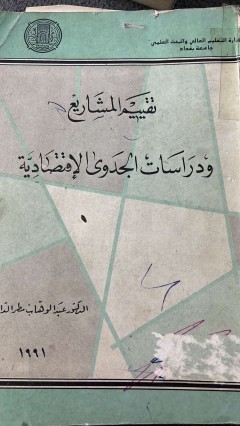 وزارة التعليم العالي والبحث العلمي
جامعة بغداد
تقييم المشاريع
ودراسات الجدوى الإقتصادية
الدكتور عبد الوهاب مطر
١٩٩١